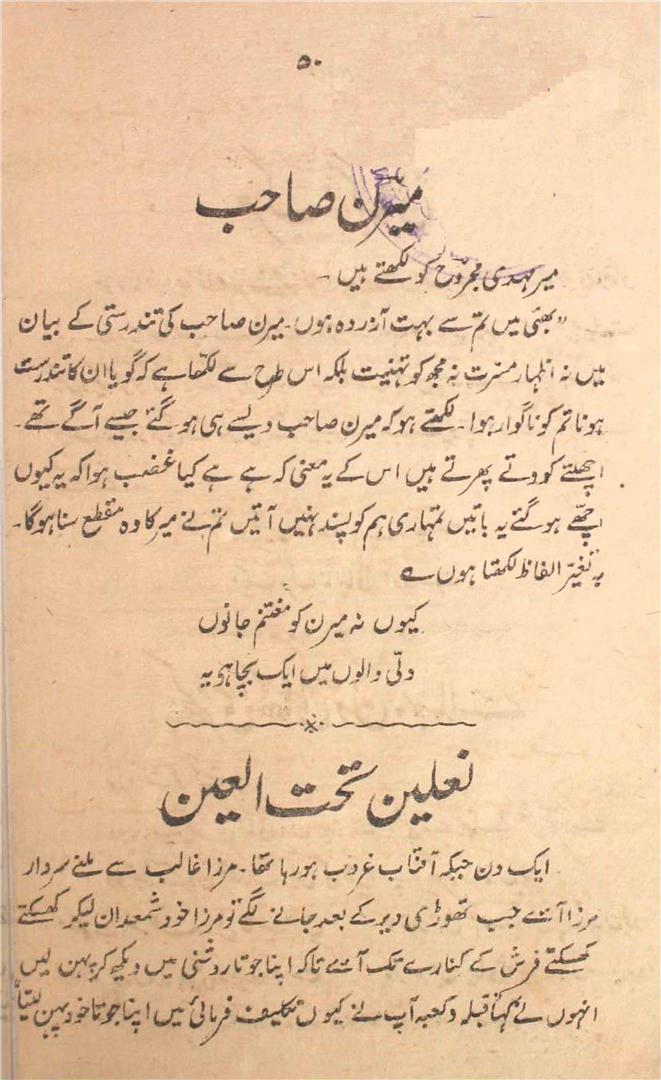 ۵۰
میرن صاحب
میر مہدی مجروح کو لکھتے ہیں۔
”بھئی میں تم سے بہت آزردہ ہوں۔ میرن صاحب کی تندرستی کے بیان
میں نہ اظہار مسرت نہ مجھ کو تہنیت بلکہ اس طرح سے لکھا ہے کہ گویا ان کا تندرست
ہونا تم کو ناگوار ہوا۔ لکھتے ہو کہ میرن صاحب ویسے ہی ہو گئے جیسے آگے تھے۔
اچھلتے کودتے پھرتے ہیں اس کے یہ معنی کہ ہے ہے کیا غضب ہوا کہ یہ کیوں
اچھے ہو گئے یہ باتیں تمہاری ہم کو پسند نہیں آتیں تم نے میر کا وہ مقطع سنا ہوگا۔
بہ تغیر الفاظ لکھتا ہوں ؎
کیوں نہ میرن کو مغتنم جانوں
دلی والوں میں ایک بچا ہے یہ
نعلین تحت العین
ایک دن جبکہ آفتاب غروب ہو رہا تھا۔ مرزا غالب سے ملنے سردار
مرزا آئے جب تھوڑی دیر کے بعد جانے لگے تو مرزا خود شمعدان لیکر کھسکتے
کھسکتے فرش کے کنارے تک آئے تاکہ اپنا جوتا روشنی میں دیکھ کر پہن لیں
انہوں نے کہا قبلہ و کعبہ آپ نے کیوں تکلیف فرمائی میں اپنا جوتا خود پہن لیتا“